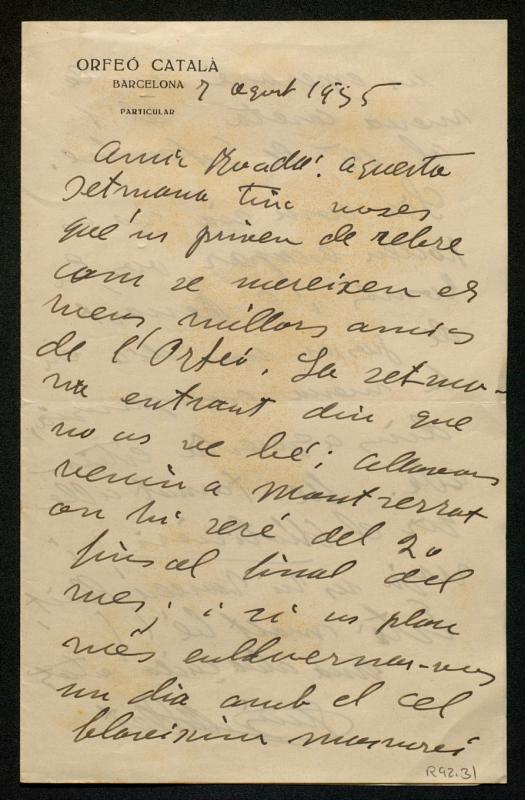 ORFEÓ CATALÀ
BARCELONA
PARTICULAR
7 agost 1935
Amic : aquesta
setmana tinc noses
que'ns priven de rebre
com se mereixen els
meus millors amics
de l'Orfeó. La setma-
na entrant diu que
no us ve bé; allavors
venin a Montserrat
on hi seré del 20
fins al final del
mes; i si us plau
més enlluernar-vos
un dia amb el cel
blavissim
R92.31